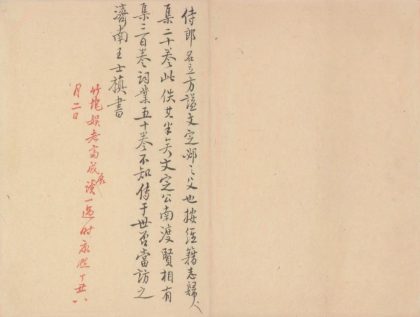 侍郎名立方謚文定邲之父也按經籍志歸愚
集二十卷此佚其半矣文定公南渡賢相有
集二百卷詞業五十卷不知傳于世否當訪之
濟南王士禛書
竹垞娛老齋讀一過時康熙丁丑八
月二日